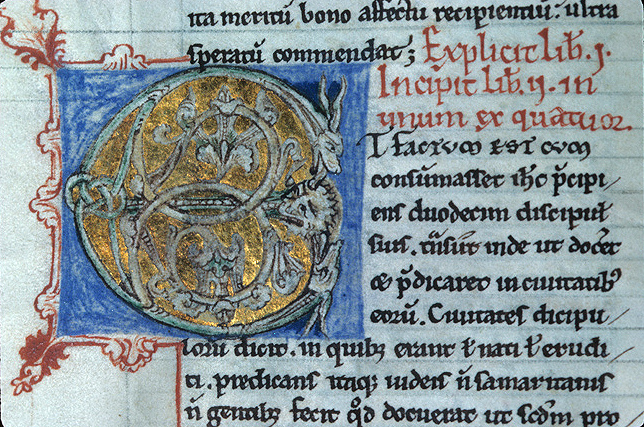 ita meritū bono affectu recipientiū: ultra
speratū commendat; Explicit lib. I.
Incipit lib. II. in
unum ex quattuor.
ET FACTVM EST CVM
consūmasset ihc p̄cipi/
ens duodecim discipul̄
suis. t̄nsiit inde ut docēt
& p̄dicaret in ciuitatibꝫ
eorū. Ciuitates discipu/
loru dicit. in quibꝫ erant ł nati ł erudi/
ti. predicans itaqꝫ iudeis n̄ samaritanis
n̄ gentibꝫ fecit qđ docuerat ut scdm pro/